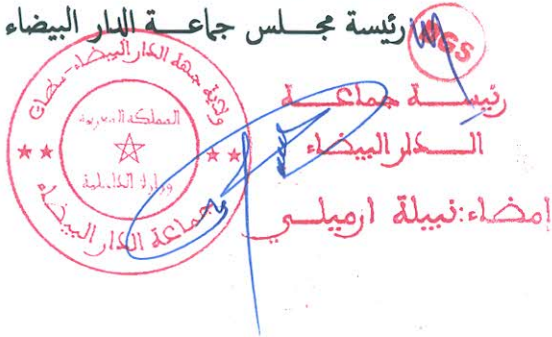 رئيسة مجلس جماعة الدار البيضاء
رئيسة جماعة
الدار البيضاء
إمضاء: نبيلة ارميلي
ولاية جهة الدار البيضاء - سطات
المملكة المغربية
وزارة الداخلية
جماعة الدار البيضاء